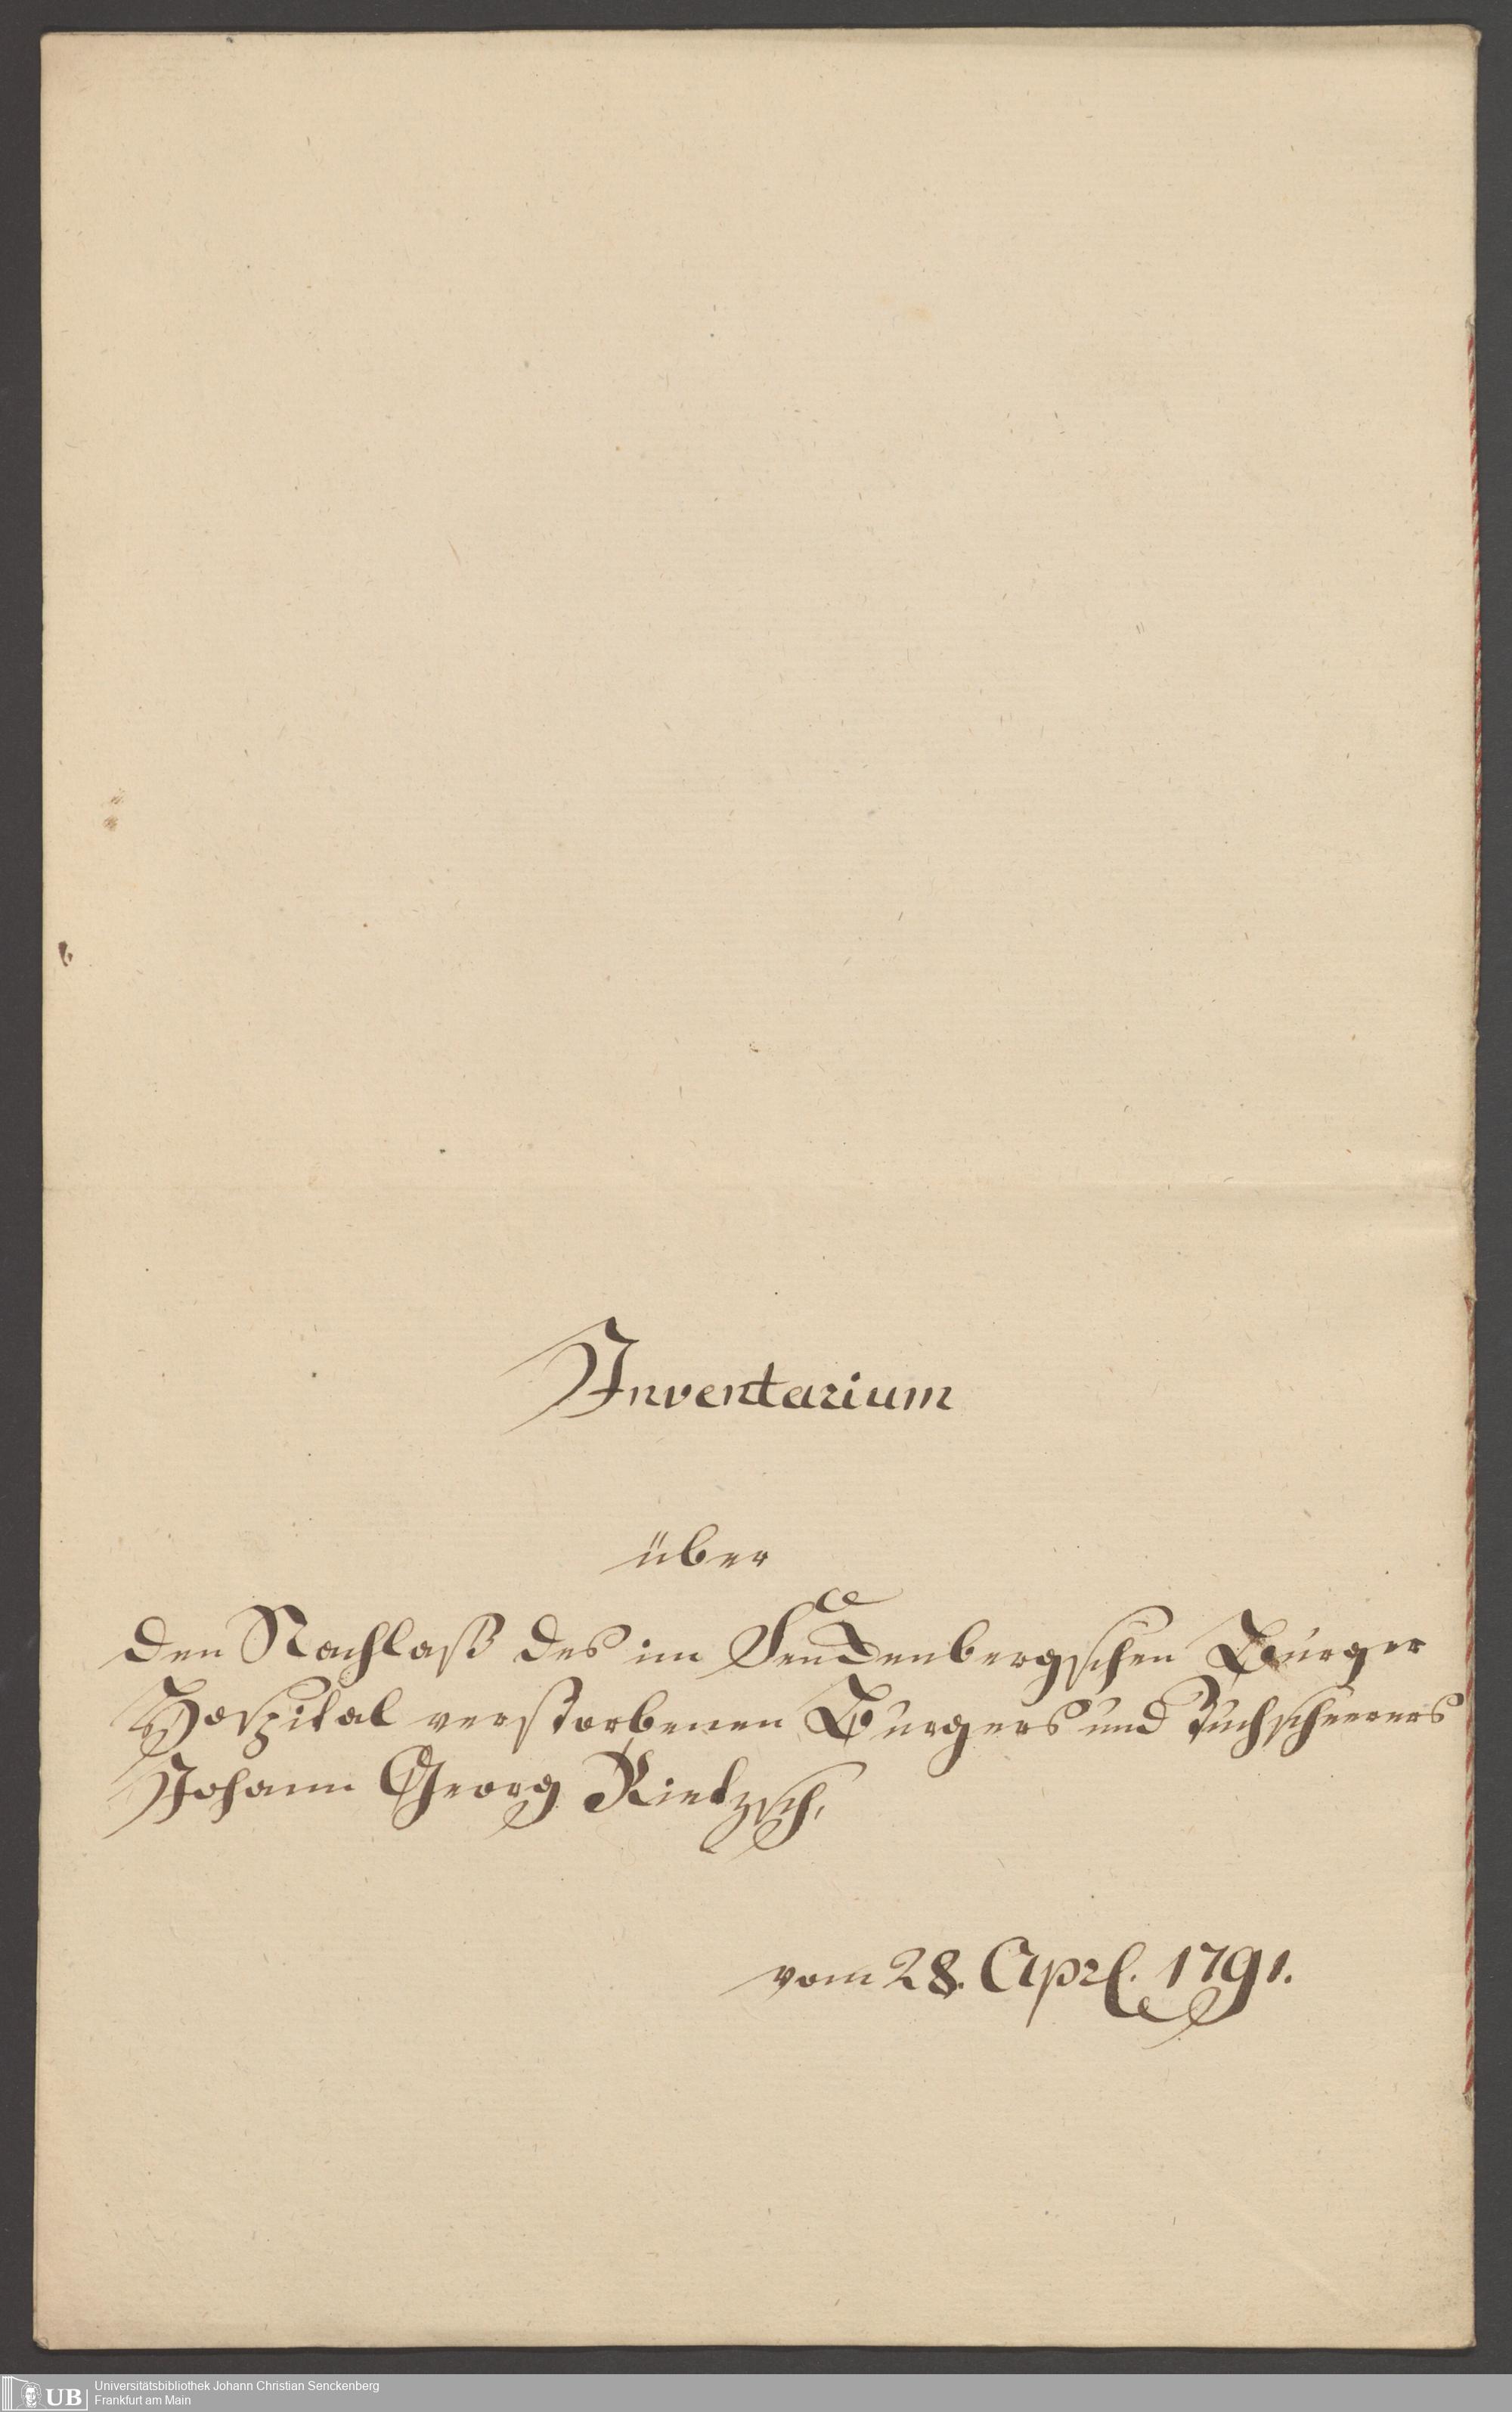 Inventarium
über
den Nachlaß des im Senckenbergschen Bürger
Hospital verstorbenen Burgers und Tuchscheerers
Johann Georg Rietzsch,
vom 28. Aprl. 1791.
UB Universitätsbibliothek Johann Christian Senckenberg
Frankfurt am Main